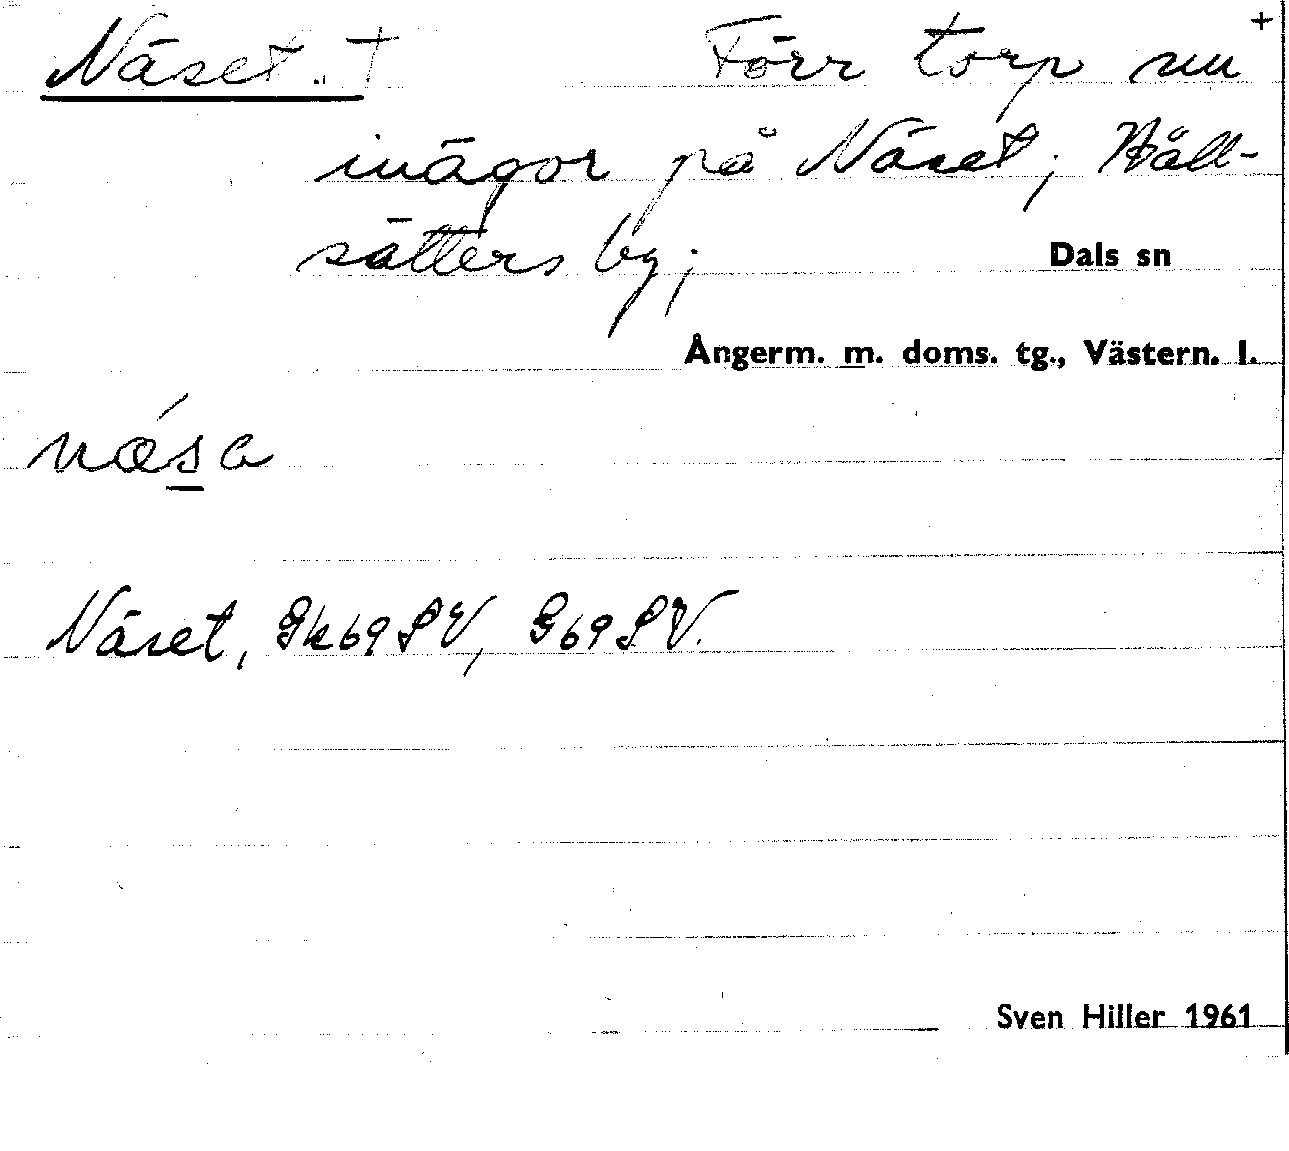 Näset. † Förr torp nu +
inägor på Näset, Häll-
sätters by;
Dals sn
Ångerm. m. doms. tg., Västern. l.
Näset, Gk69SV, G69SV.
Sven Hiller 1961